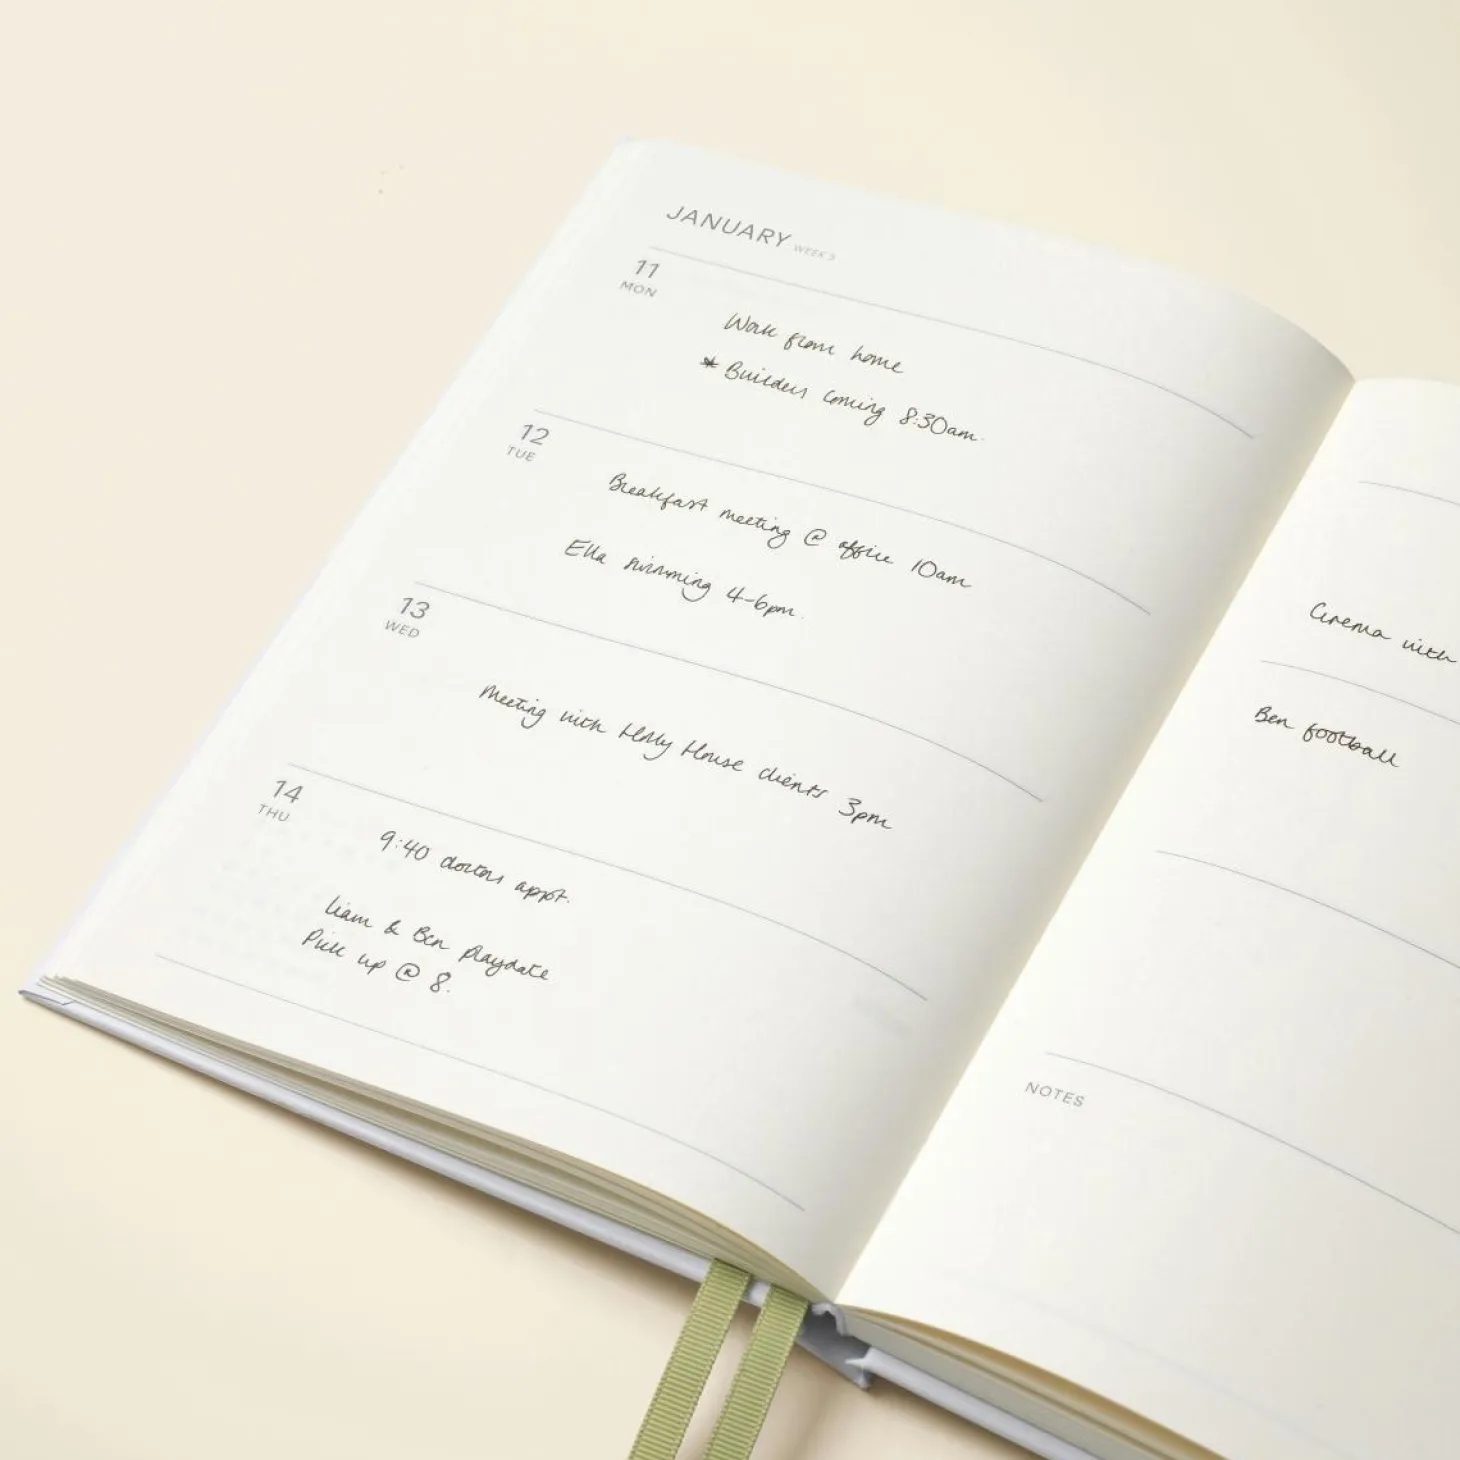 JANUARY WEEK 3
11
MON
Work from home
* Builders coming 8:30am.
12
TUE
Breakfast meeting @ office 10am
Ella swimming 4-6pm.
13
WED
Meeting with Holly House clients 3pm
14
THU
9:40 doctors appt.
Liam & Ben playdate
Pick up @ 8.
Cinema with
Ben football
NOTES